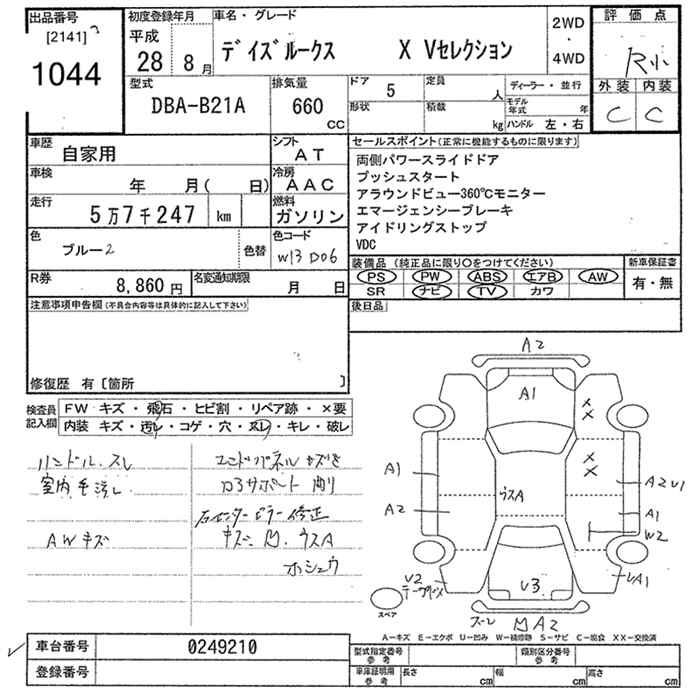 出品番号
[2141]
1044
初度登録年月
平成
28 8月
車名・グレード
デイズルークス X Vセレクション
2WD
・
4WD
評価点
R小
外装 内装
C C
型式
DBA-B21A
排気量
660
CC
ドア 5
定員 人
形状
積載 kg
ディーラー・並行
モデル年式 年
ハンドル 左・右
車歴
自家用
シフト
AT
車検
年 月( 日)
冷房
AAC
走行
5万7千247 km
燃料
ガソリン
色
ブルー2
色替
色コード
W13 D06
R券
8,860円
名変通知期限
月 日
セールスポイント(正常に機能するものに限ります)
両側パワースライドドア
プッシュスタート
アラウンドビュー360℃モニター
エマージェンシーブレーキ
アイドリングストップ
VDC
装備品 (純正品に限り○をつけてください)
新車保証書
PS PW ABS エアB AW
有・無
SR ナビ TV カワ
注意事項申告欄(不具合内容等は具体的に記入して下さい)
後日品
修復歴 有〔箇所 〕
検査員
記入欄
FW キズ・飛石・ヒビ割・リペア跡・×要
内装 キズ・汚レ・コゲ・穴・スレ・キレ・破レ
ハンドル.スレ
室内 汚レ
AWキズ
コアサポート 削り
右センターピラー修正
キズ、凹、ウスA
ホシュウ
A2
A1
×
×
A1
×
×
A2 U1
A2
ウスA
A1
W2
U2
U3
A1
凹A2
スペア
A-キズ E-エクボ U-凹み W-補修跡 S-サビ C-腐食 XX-交換済
車台番号
0249210
登録番号
型式指定番号
参考
類別区分番号
参考
車庫証明用
参考
長さ cm
幅 cm
高さ cm